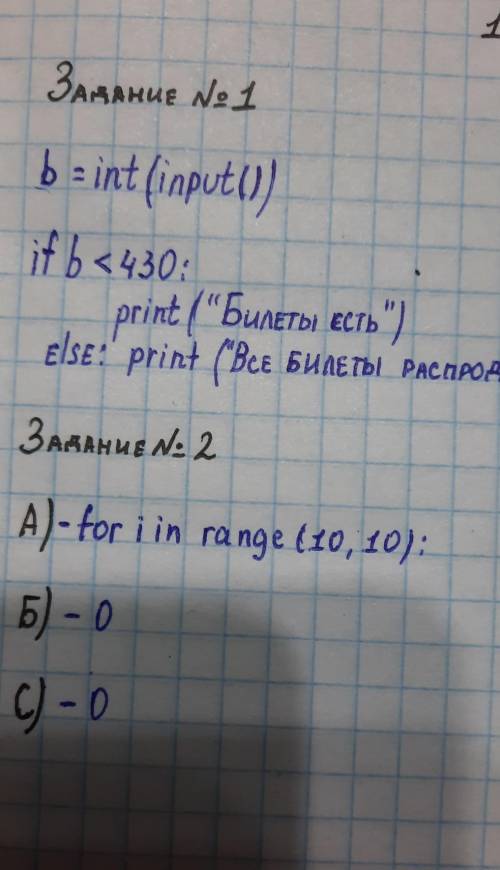 1
Задание №1
b = int(input())
if b < 430:
print ("Билеты есть")
else: print ("Все билеты
Задание № 2
А) - for i in range (10, 10):
Б) - 0
С) - 0